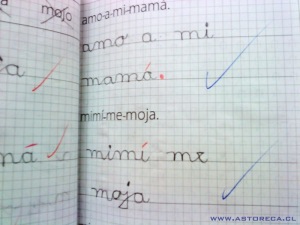 mojo
a
ná
amo-a-mi-mamá.
amo a mi
mamá.
mimí-me-moja.
mimí me
moja
WWW.ASTORECA.CL